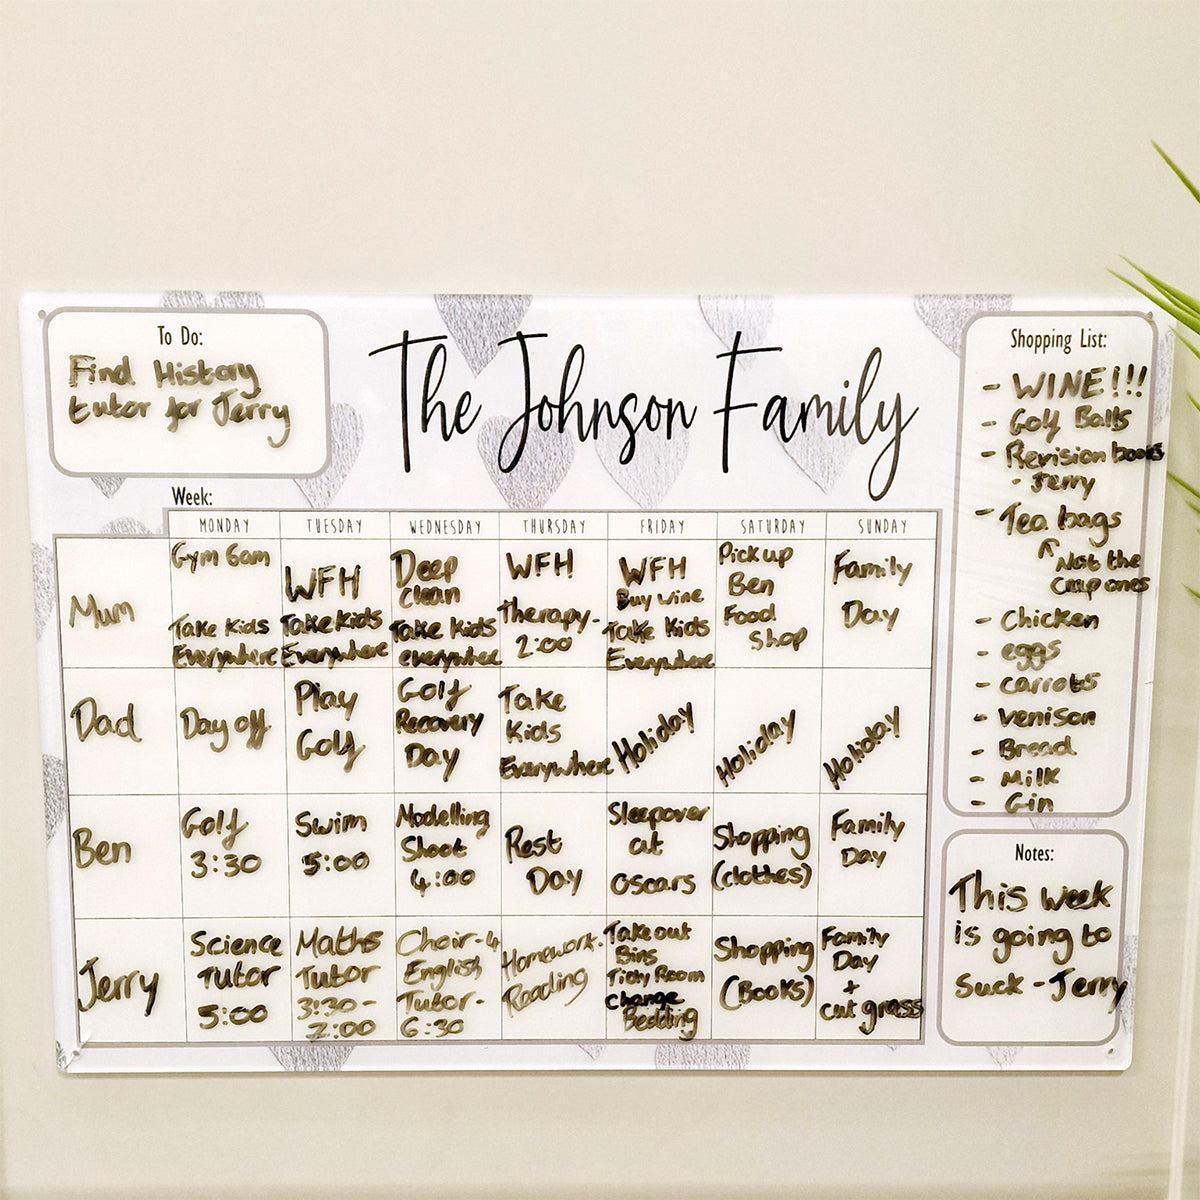 To Do:
Find History
tutor for Jerry
The Johnson Family
Shopping List:
- WINE!!!
- Golf Balls
- Revision books
- Jerry
- Tea bags
Not the
Crap ones
- Chicken
- eggs
- carrots
- venison
- Bread
- Milk
- Gin
Week:
MONDAY TUESDAY WEDNESDAY THURSDAY FRIDAY SATURDAY SUNDAY
Mum
Gym 6am
Take Kids
Everywhere
WFH
Take Kids
Everywhere
Deep
Clean
Take Kids
everywhere
WFH
Therapy-
2:00
WFH
Buy wine
Take Kids
Everywhere
Pick up
Ben
Food
Shop
Family
Day
Dad
Day off
Play
Golf
Golf
Recovery
Day
Take
Kids
Everywhere
Holiday
Holiday
Holiday
Ben
Golf
3:30
Swim
5:00
Modelling
Shoot
4:00
Rest
Day
Sleepover
at
Oscars
Shopping
(clothes)
Family
Day
Jerry
Science
Tutor
5:00
Maths
Tutor
3:30-
7:00
Choir-4
English
Tutor-
6:30
Homework.
Reading
Take out
Bins
Tidy Room
Change
Bedding
Shopping
(Books)
Family
Day
+
cut grass
Notes:
This week
is going to
Suck - Jerry